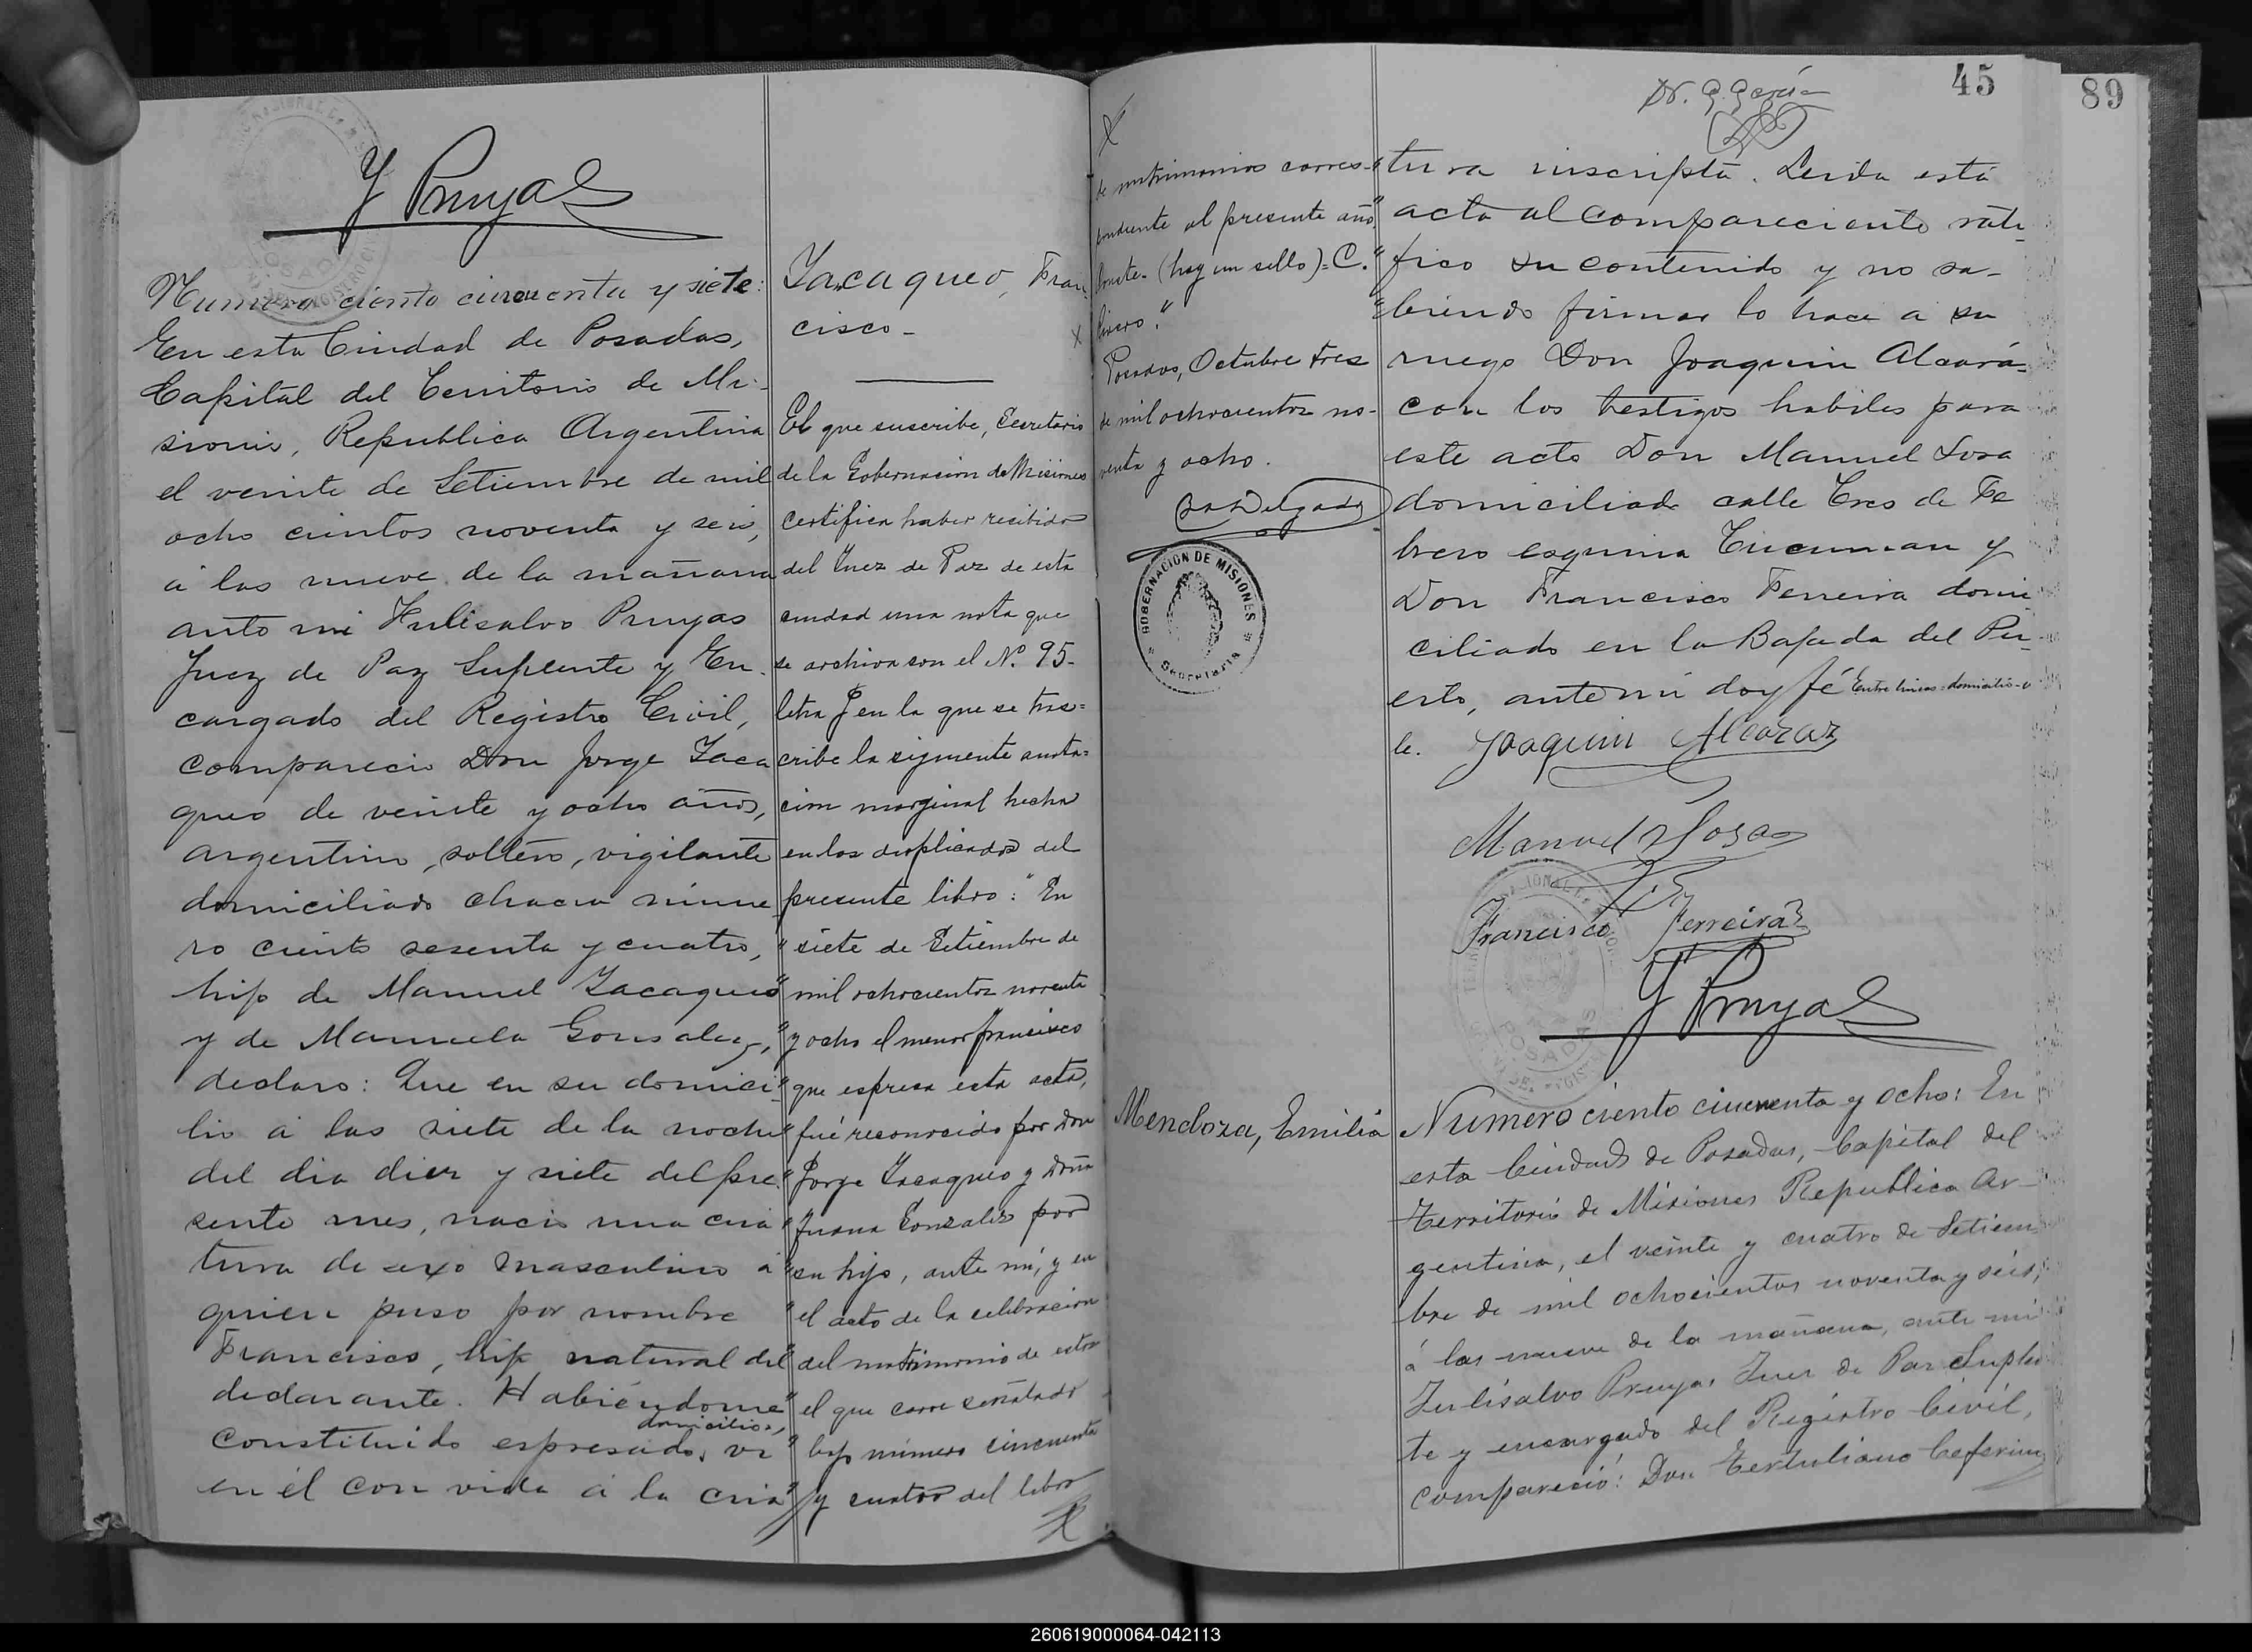 Y Pruyas
Numero ciento cincuenta y siete:
En esta Ciudad de Posadas,
Capital del Territorio de Mi-
siones, Republica Argentina
el veinte de Setiembre de mil
ocho cientos noventa y seis,
á las nueve de la mañana
ante mi Julisalvo Pruyas
Juez de Paz Suplente y En-
cargado del Registro Civil,
compareció Don Jorge Yaca
queo de veinte y ocho años,
argentino, soltero, vigilante
domiciliado chacra núme
ro ciento sesenta y cuatro,
hijo de Manuel Yacaqueo
y de Manuela Gonsalez,
declaro: Que en su domici-
lio á las siete de la noche
del dia diez y siete del pre-
sente mes, nació una cria
tura de sexo masculino á
quien puso por nombre
Francisco, hijo natural del
declarante. Habiéndome
domicilio,
constituido espresado, vi
en él con vida á la cria
Yacaqueo, Fran-
cisco-
El que suscribe, Secretario
de la Gobernacion de Misiones
certifica haber recibido
del Juez de Paz de esta
ciudad una nota que
se archiva con el Nº. 95-
letra J en la que se tras=
cribe la siguiente anota=
cion marginal hecha
en los duplicados del
presente libro: "En
"siete de Setiembre de
"mil ochocientos noventa
"y ocho el menor francisco
"que espresa esta acta,
"fué reconocido por Don
"Jorge Yacaqueo y Doña
"Juana Gonzalez por
"su hijo, ante mí, y en
"el acto de la celebracion
"del matrimonio de estos
"el que corre señalado
"bajo número cincuenta
"y cuatro del libro
X
de matrimonios corres-"
pondiente al presente año"
Conste- (hay un sello)=C."
X
Posadas, Octubre tres
de mil ochocientos no-
venta y ocho.
Delgado
GOBERNACIÓN DE MISIONES
SECRETARIA
45
89
Dr. G. García
tura inscripta. Leida esta
acta al compareciente rati-
fico su contenido y no sa-
biendo firmar lo hace a su
ruego Don Joaquin Alcará-
con los testigos habiles para
este acto Don Manuel Sosa
domiciliado calle Tres de Fe
brero esquina Tucuman y
Don Francisco Ferreira domi
ciliado en la Bajada del Pu-
erto, ante mi doy fé Entre lineas=domicilio-v
le. Joaquin Alcaraz
Manuel Sosa
Francisco Ferreira
Y Pruyas
POSADAS
Mendoza, Emilia
Numero ciento cincuenta y ocho: En
esta Ciudad de Posadas, Capital del
Territorio de Misiones Republica Ar-
gentina, el veinte y cuatro de Setiem
bre de mil ochocientos noventa y seis,
á las nueve de la mañana, ante mi
Julisalvo Pruyas Juez de Paz Suplen
te y encargado del Registro Civil,
compareció: Don Tertuliano Ceferino
260619000064-042113